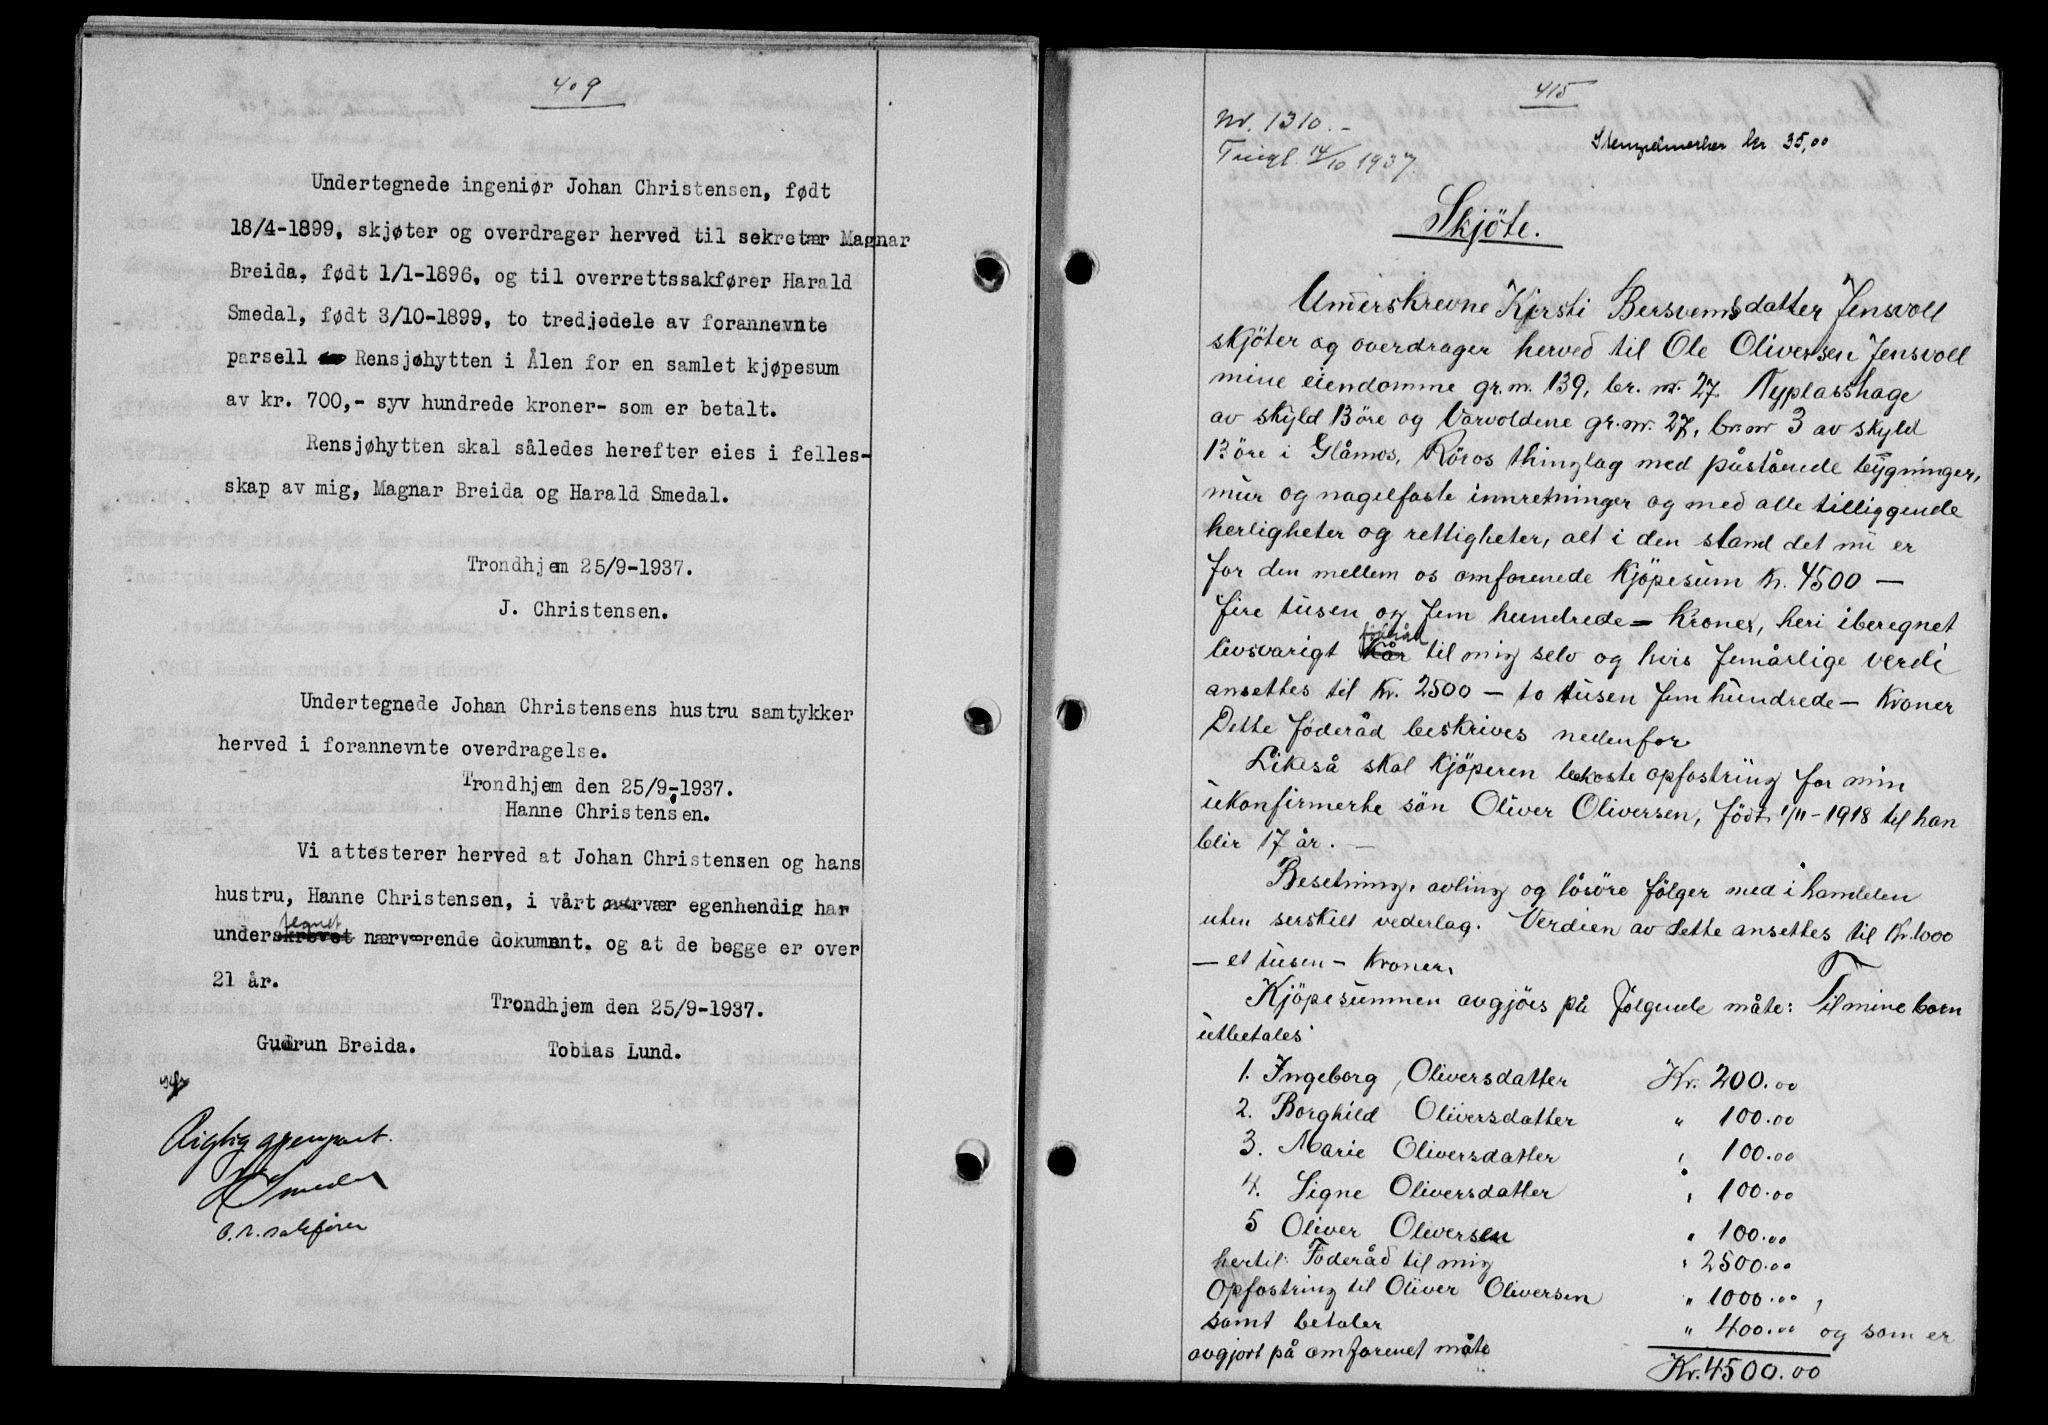 409
Undertegnede ingeniør Johan Christensen, født
18/4-1899, skjøter og overdrager herved til sekretær Magnar
Breida, født 1/1-1896, og til overrettssakfører Harald
Smedal, født 3/10-1899, to tredjedele av forannevnte
parsell Rensjøhytten i Ålen for en samlet kjøpesum
av kr. 700,- syv hundrede kroner- som er betalt.
Rensjøhytten skal således herefter eies i felles-
skap av mig, Magnar Breida og Harald Smedal.
Trondhjem 25/9-1937.
J. Christensen.
Undertegnede Johan Christensens hustru samtykker
herved i forannevnte overdragelse.
Trondhjem den 25/9-1937.
Hanne Christensen.
Vi attesterer herved at Johan Christensen og hans
hustru, Hanne Christensen, i vårt nærvær egenhendig har
tegnet
underskrevet nærværende dokument. og at de begge er over
21 år.
Trondhjem den 25/9-1937.
Gudrun Breida. Tobias Lund.
Riglig gjenpart.
H Smedal
o.r.sakfører
415
Nr. 1310.-
Tingl. 14/10 1937.
Stempelmerker kr 35,00
Skjöte.
Underskrevne Kjersti Bersvensdatter Jensvoll
skjöter og overdrager herved til Ole Oliversen Jensvoll
mine eiendomme gr.nr. 139, br. nr. 27. Nyplasshage
av skyld 13 öre og Varvoldene gr.nr. 27, br.nr 3 av skyld
13 öre i Glåmos, Röros thinglag med påstående bygninger,
mur og nagelfaste innretninger og med alle tilliggende
herligheter og rettigheter, alt i den stand det nu er
for den mellem os omforenede Kjöpesum Kr. 4500 —
fire tusen og fem hundrede — Kroner, heri iberegnet
föderåd
livsvarigt kår til mig selv og hvis femårlige verdi
ansettes til Kr. 2500 — to tusen fem hundrede — Kroner
Dette föderåd beskrives nedenfor.
Likeså skal Kjöperen bekoste opfostring for min
ukonfirmerte sön Oliver Oliversen, född 1/11 - 1918 til han
blir 17 år. —
Besetning, avling og lösöre fölger med i handelen
uten serskilt vederlag. Verdien av dette ansettes til Kr. 1000
— et tusen — Kroner.
Kjöpesummen avgjöres på fölgende måte: Til mine born
utbetales
1. Ingeborg Oliversdatter Kr. 200.00
2. Borghild Oliversdatter " 100.00
3. Marie Oliversdatter " 100.00
4. Signe Oliversdatter " 100.00
5 Oliver Oliversen " 100.00
hertil: Föderåd til mig " 2500.00
Opfostring til Oliver Oliversen " 1000.00,
samt betaler " 400.00 og som er
avgjort på omforenet måte
Kr. 4500.00